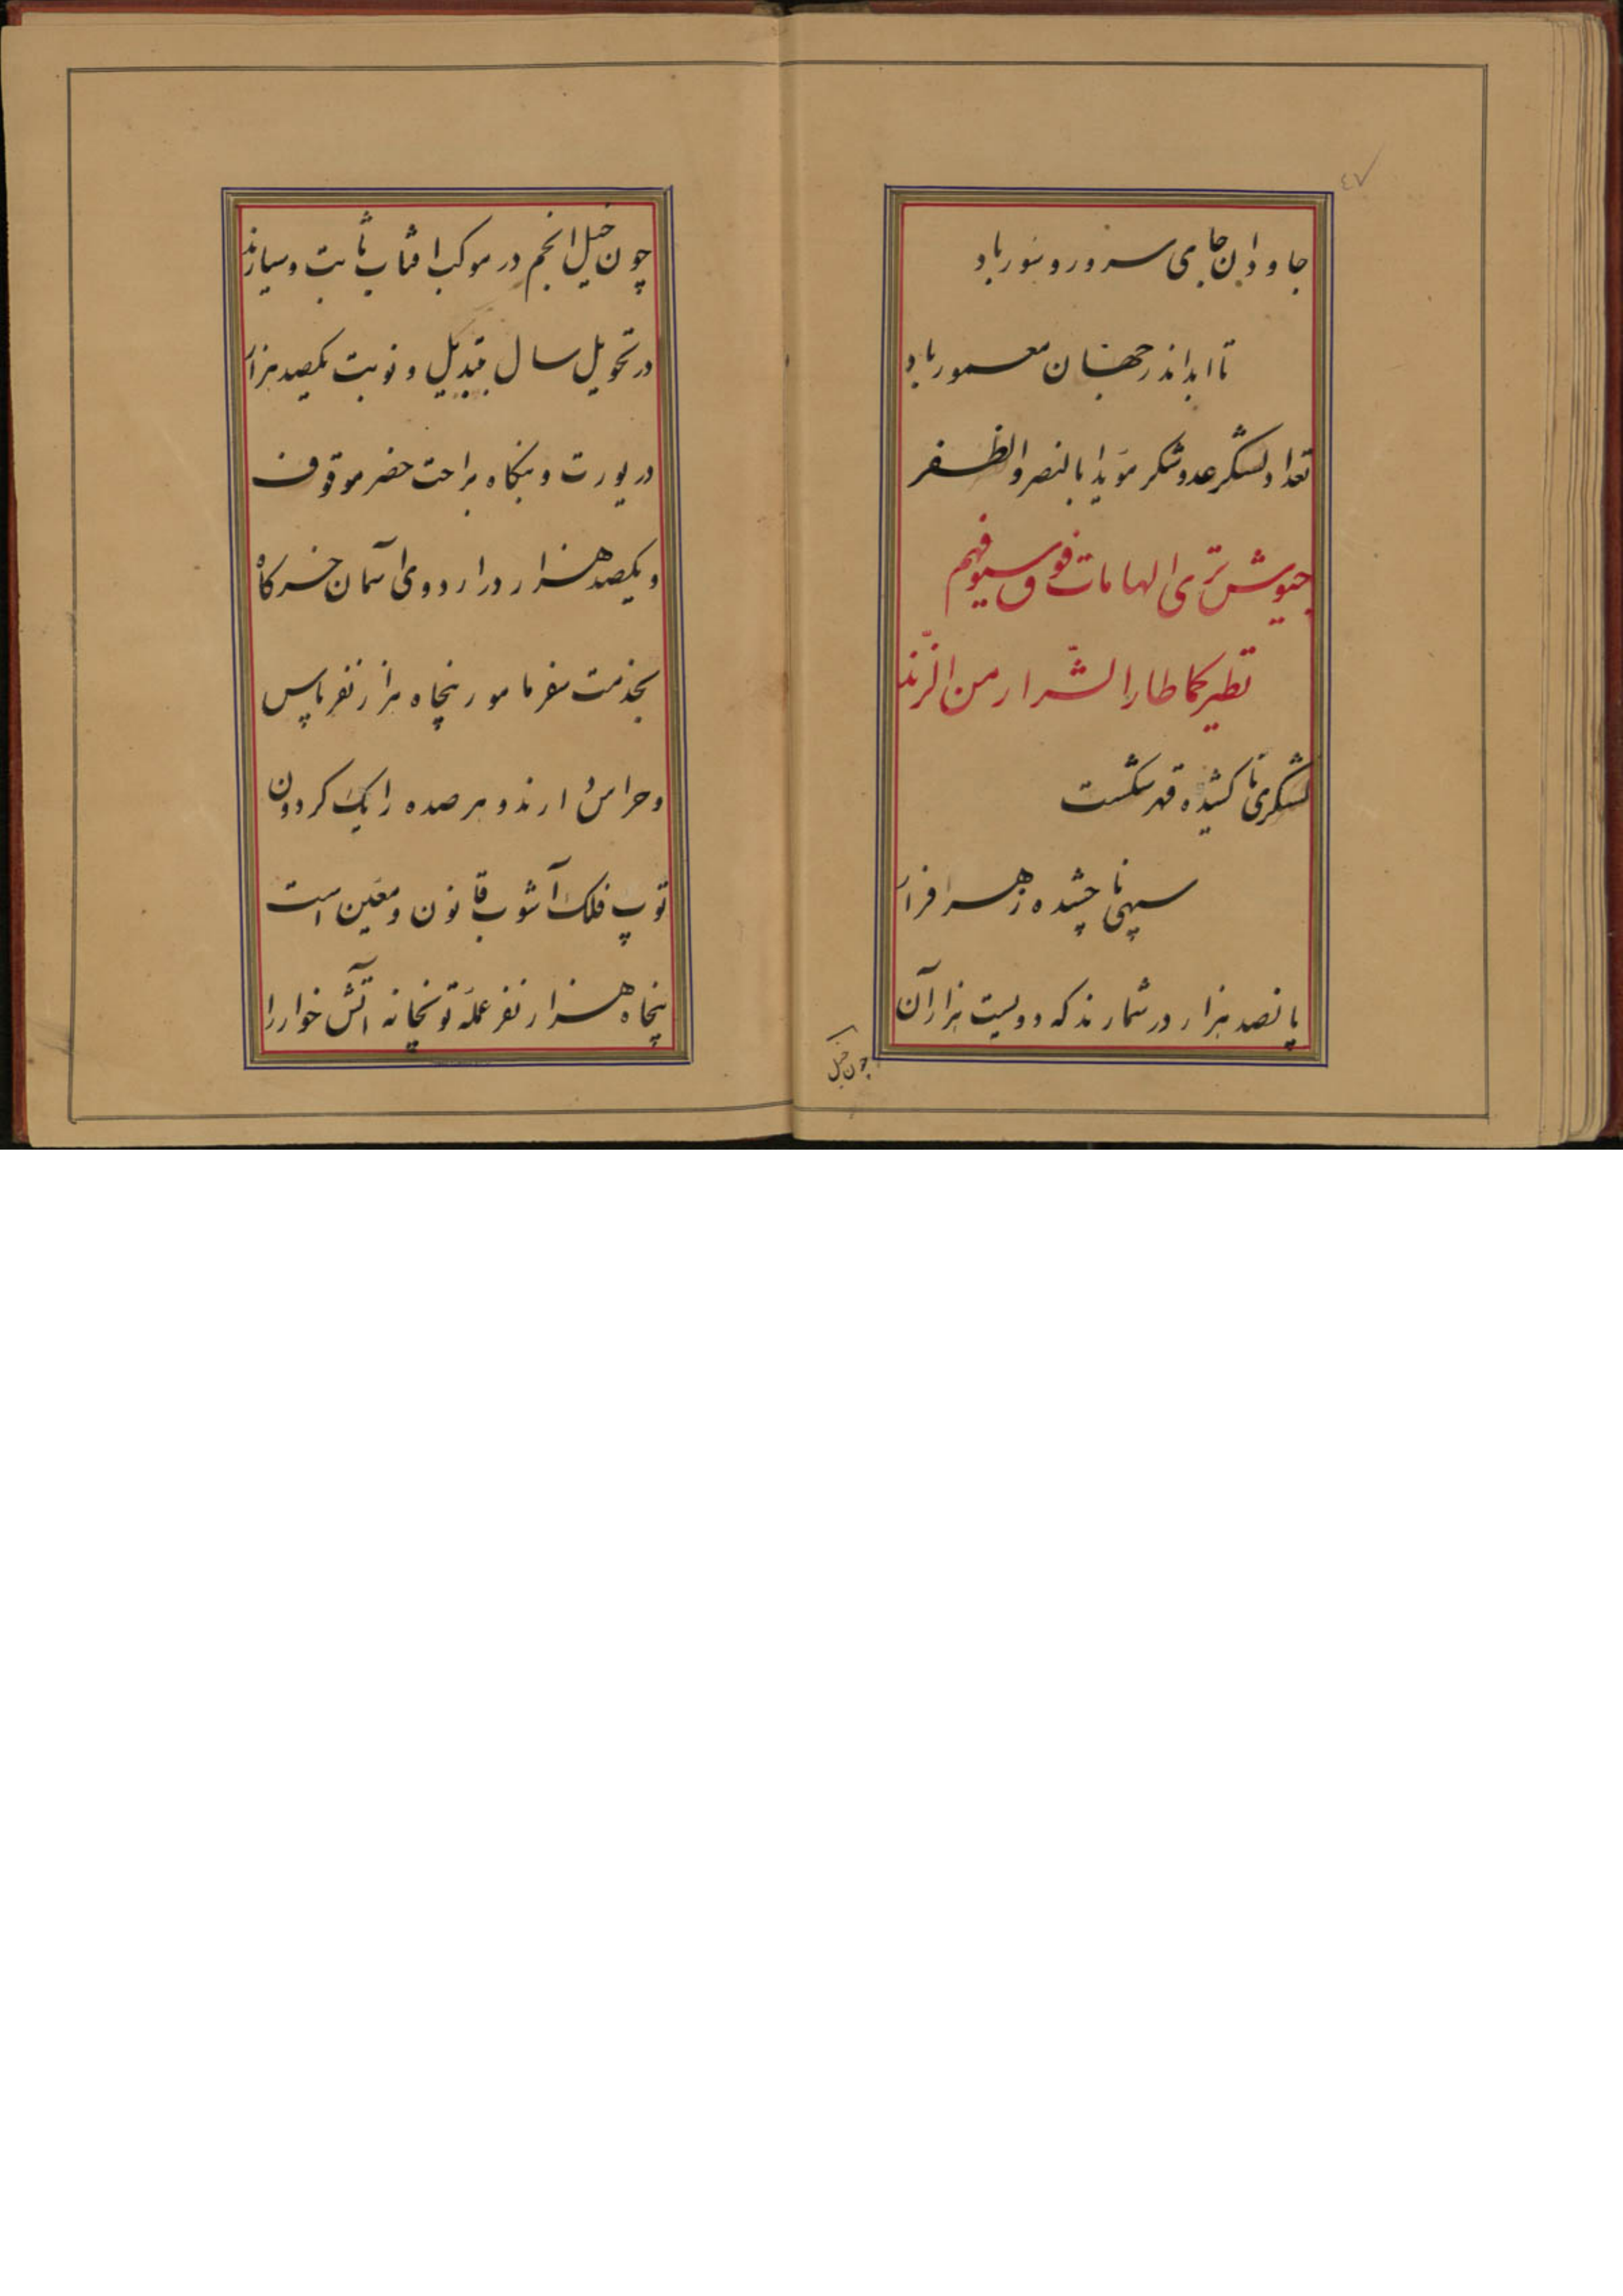 ٤٧
جاودان جای سرور و سور باد
تا ابد اندر جهان معمور باد
تعداد لشگر عدو شکر مؤیدا بالنصر والظفر
جیوش تری الهامات فوق سیوفهم
تطیر کما طار الشّرار من الزّند
لشگری ناکشیده قهر شکست
سپهی ناچشیده زهر فرار
پانصد هزار در شمارند که دویست هزار آن
چون خیل
چون خیل انجم در موکب افتاب ثابت و سیارند
در تحویل سال بتبدیل و نوبت یکصد هزار
در یورت و بنکاه براحت حضر موقوف
و یکصد هزار در اردوی آسمان خرکاه
بخدمت سفر مامور پنجاه هزار نفر پاس
و حراس دارند و هر صده را یک کردون
توپ فلک آشوب قانون و معین است
پنجاه هزار نفر عمله توپخانه آتش خوار را